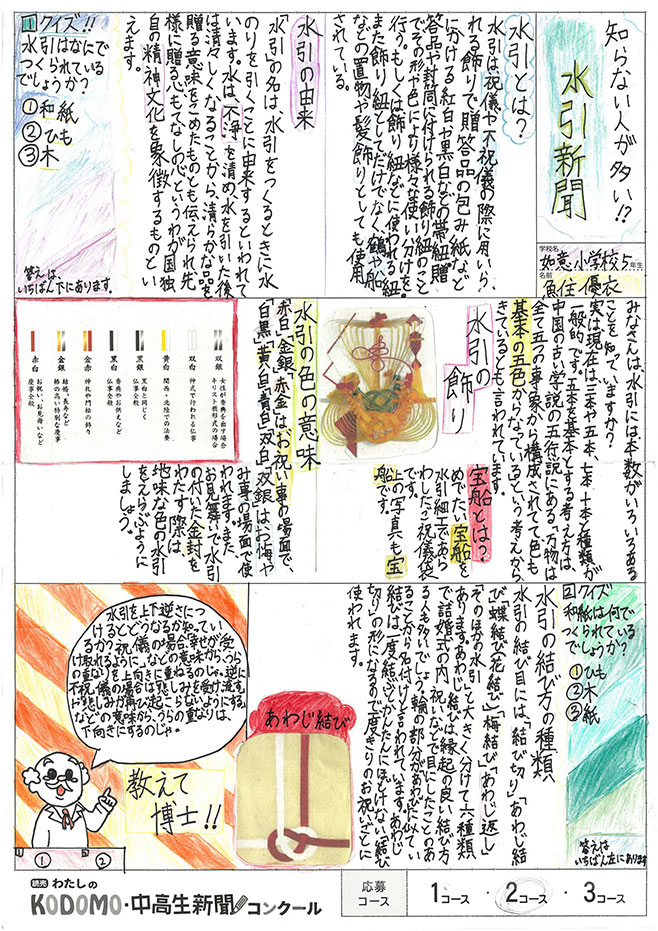 知らない人が多い!?
水引新聞
学校名
如意小学校5年生
名前
魚住優衣
水引とは?
水引は祝儀や不祝儀の際に用いら
れる飾りで贈答品の包み紙など
にかける紅白や黒白などの帯紐贈
答品や封筒に付けられる飾り紐のこと
でその形や色により様々な使い分けを
行う。もしくは飾り紐などに使われる紐
また飾り紐としてだけでなく鶴や船
などの置物や髪飾りとしても使用
されている。
水引の由来
「水引」の名は、水引をつくるときに水
のりを引くことに由来するといわれて
います。水は、不浄を清め、水を引いた後
は清々しくなることから、清らかな品を
贈る意味をこめたものとも伝えられ先
様に贈る心もてなしというわが国独
自の精神文化を象徴するものとい
えます。
1 クイズ!!
水引はなにで
つくられている
でしょうか?
①和紙
②ひも
③木
答えは、
いちばん下にあります。
みなさんは、水引には本数がいろいろある
ことを知っていますか?
実は現在は三本や五本、七本、十本と種類が
一般的です。五本を基本とする考え方は、
中国の古い学説の五行説にある、万物は
全て五つの事象から構成されてて色も
基本の五色からなっているという考えから
きているとも言われています。
水引の
飾り
宝船とは?
めでたい宝船を
水引細工であら
わしたら祝儀袋
です。
上の写真も宝
船です。
水引の色の意味
赤白、金銀、赤金は、お祝い事の場面で、
白黒、黄白、青白、双白、双銀は、お悔や
み事の場面で使
われます。また
お見舞いで水引
の付いた金封を
わたす際は
地味な色の水引
をえらぶように
しましょう。
双銀
女性が喪典を出す場合
キリスト教形式の場合
双白
神式で行われる仏事
黄白
関西・北陸での法要
黒銀
黒白と同じく
仏事全般
黒白
香典やお供えなど
仏事全般
赤金
神札や門松の飾り
金銀
結婚、長寿など
格の高い特別な慶事
赤白
お祝い、お見舞いなど
慶事全般
2 クイズ
和紙は何で
つくられている
でしょうか?
①ひも
②木
③紙
答えは
いちばん左にあります
水引の結び方の種類
水引の結び目には、「結び切り」「あわじ結
び」「蝶結び(花結び)」「梅結び」「あわじ返し」
「そのほかの水引」と大きく分けて六種類
あります。あわじ結びは縁起の良い結び方
で結婚式の内祝いなどで目にしたことのあ
る人も多いでしょう。輪の部分があわびに似てい
ることから名付けと言われています。あわじ
結びは一度結ぶとかんたんにほどけない「結び
切り」の形になるので一度きりのお祝いごとに
使われます。
あわじ結び
水引を上下逆さにつ
けるとどうなるか知ってい
るか?祝儀の場合、幸せが受
け取れるように
不祝儀の場合は
下向きにするのじゃ。
教えて
博士!!
①
②
読売 わたしの
KODOMO・中高生新聞コンクール
応募
コース
1コース・2コース・3コース